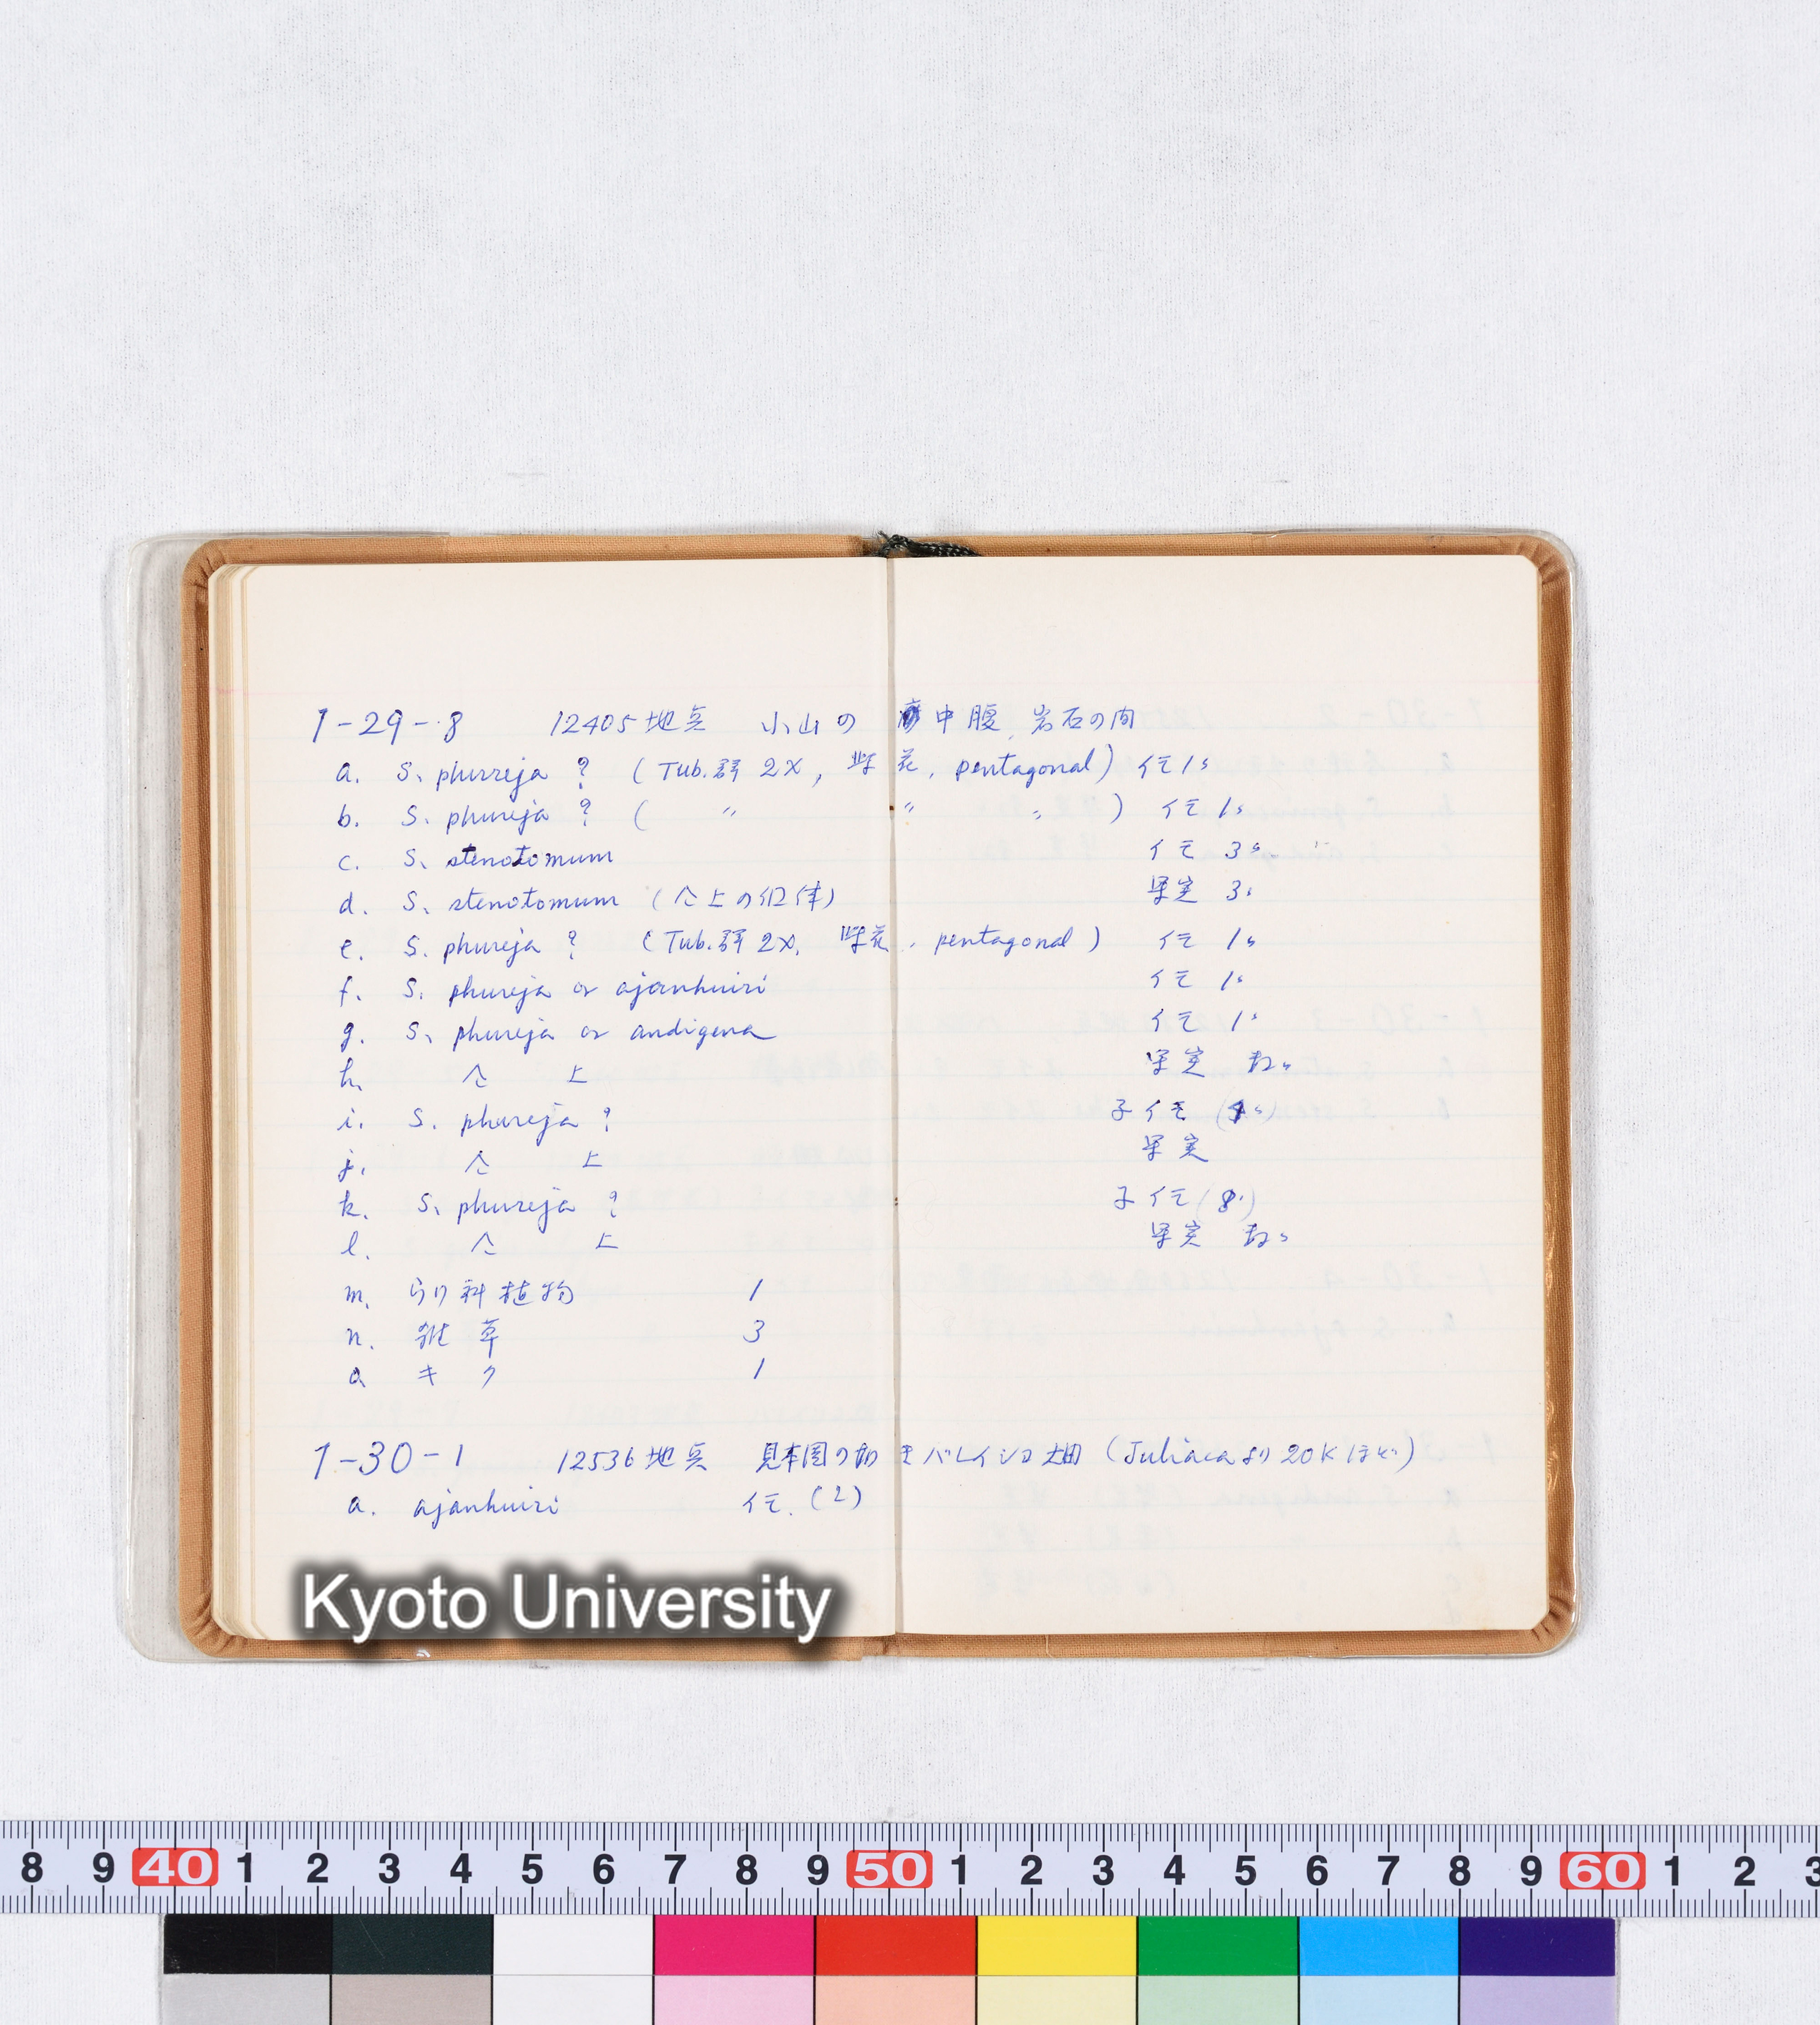 1-29-8 12405地点 小山の中腹、岩石の間
a. S. phureja ? (Tub.群 2X, 紫花, pentagonal) イモ 1s
b. S. phureja ? ( 〃 〃 〃 ) イモ 1s
c. S. stenotomum イモ 3s
d. S. stenotomum (仝上の個体) 果実 3s
e. S. phureja ? (Tub.群 2X, 紫花, pentagonal) イモ 1s
f. S. phureja or ajanhuiri イモ 1s
g. S. phureja or andigena イモ 1s
h. 仝上 果実
i. S. phureja ? 子イモ
j. 仝上 果実
k. S. phureja ? 子イモ (8)
l. 仝上 果実
m. ウリ科植物 1
n. 雑草 3
o キク 1
1-30-1 12536地点 見本園の如きバレイショ畑 (Juliacaより20Kほど)
a. ajanhuiri イモ. (2)
Kyoto University
8 9 40 1 2 3 4 5 6 7 8 9 50 1 2 3 4 5 6 7 8 9 60 1 2 3